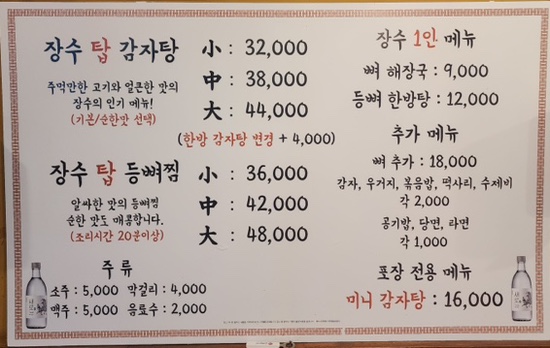 장수 탑 감자탕
小 : 32,000
中 : 38,000
大 : 44,000
주먹만한 고기와 얼큰한 맛의
장수의 인기 메뉴!
(기본/순한맛 선택)
(한방 감자탕 변경 + 4,000)
장수 탑 등뼈찜
小 : 36,000
中 : 42,000
大 : 48,000
알싸한 맛의 등뼈찜
순한 맛도 매콤합니다.
(조리시간 20분이상)
주류
소주 : 5,000 막걸리 : 4,000
맥주 : 5,000 음료수 : 2,000
장수 1인 메뉴
뼈 해장국 : 9,000
등뼈 한방탕 : 12,000
추가 메뉴
뼈 추가 : 18,000
감자, 우거지, 볶음밥, 떡사리, 수제비
각 2,000
공기밥, 당면, 라면
각 1,000
포장 전용 메뉴
미니 감자탕 : 16,000